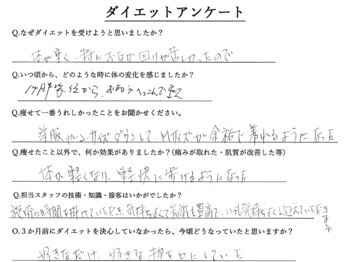 ダイエットアンケート
Q.なぜダイエットを受けようと思いましたか？
体が重く、特におなか回りが苦しかったので
Q.いつ頃から、どのような時に体の変化を感じましたか？
1ヶ月半位から、
Q.痩せて一番うれしかったことをお聞かせください。
洋服がサイズダウンして、Mサイズが余裕で着れるようになった
Q.痩せたこと以外で、何か効果がありましたか？（痛みが取れた・肌質が改善した等）
体が軽くなり、軽快に歩けるようになった
Q.担当スタッフの技術・知識・接客はいかがでしたか？
施術に時間を掛けていただき、気持ちよくて知識も豊富で、いつも気持ちよく
Q.３か月前にダイエットを決心していなかったら、今頃どうなっていたと思いますか？
好きなだけ、好きな物を口にしていた